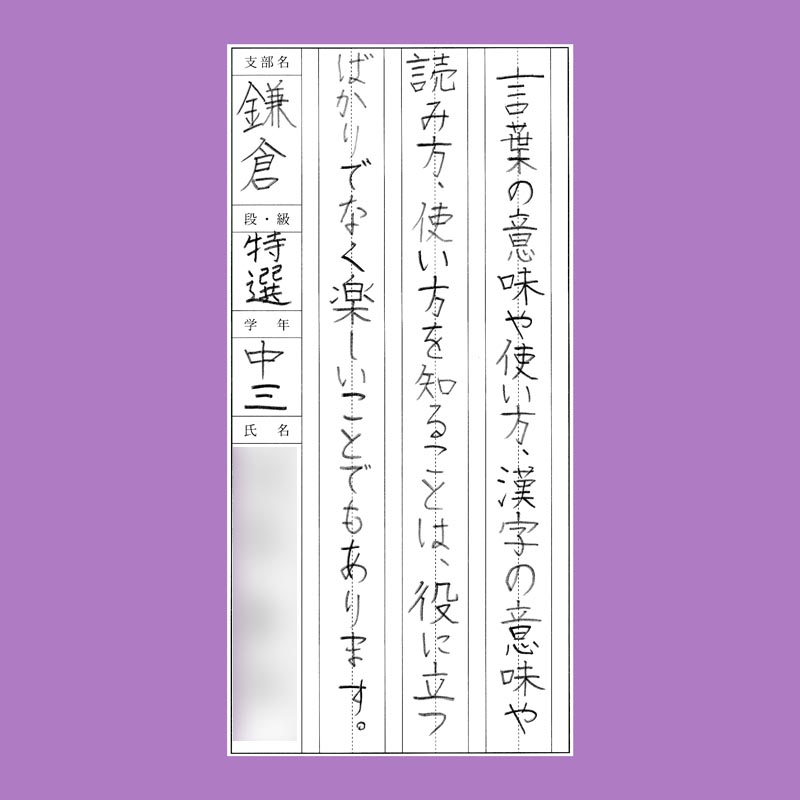 言葉の意味や使い方、漢字の意味や
読み方、使い方を知ることは、役に立つ
ばかりでなく楽しいことでもあります。
支部名
鎌倉
段・級
特選
学年
中三
氏名